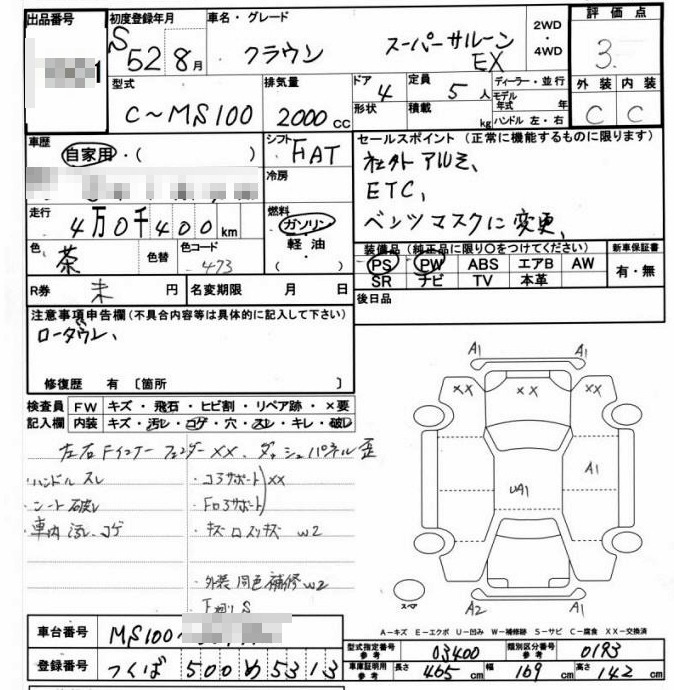 出品番号 初度登録年月 車名・グレード 2WD・4WD 評価点
S 52 8月 クラウン スーパーサルーン EX 3
1
型式 排気量 ドア 4 定員 5人 ディーラー・並行 外装 内装
C〜MS100 2000cc 形状 積載 kg モデル年式 年 ハンドル 左・右 C C
車歴 自家用・( ) シフト FAT セールスポイント (正常に機能するものに限ります)
冷房 社外アルミ、
ETC、
走行 4万0千400km 燃料 ガソリン 軽油 ( ) ベンツマスクに変更、
色 茶 色替 色コード 473 装備品 (純正品に限り○をつけてください) 新車保証書
PS PW ABS エアB AW 有・無
SR ナビ TV 本革
R券 未 円 名変期限 月 日 後日品
注意事項申告欄 (不具合内容等は具体的に記入して下さい)
ローダウン、
修復歴 有 〔箇所 〕
検査員 FW キズ・飛石・ヒビ割・リペア跡・×要
記入欄 内装 キズ・汚レ・コゲ・穴・スレ・キレ・破レ
左右Fインナーフェンダー××、ダッシュパネル歪
・ハンドルスレ ・コアサポート ××
・シート破レ ・Fロアサポート
・車内汚レ、コゲ ・キズ W2
・外装同色補修W2
下廻りS
A1 A1
×× ×× ××
A1
UA1
A2 A1
スペア
A−キズ E−エクボ U−凹み W−補修跡 S−サビ C−腐食 XX−交換済
車台番号 MS100〜
型式指定番号 参考 03400 類別区分番号 参考 0193
登録番号 つくば 500 め 5313
車庫証明用 参考 長さ 465cm 幅 169cm 高さ 142cm